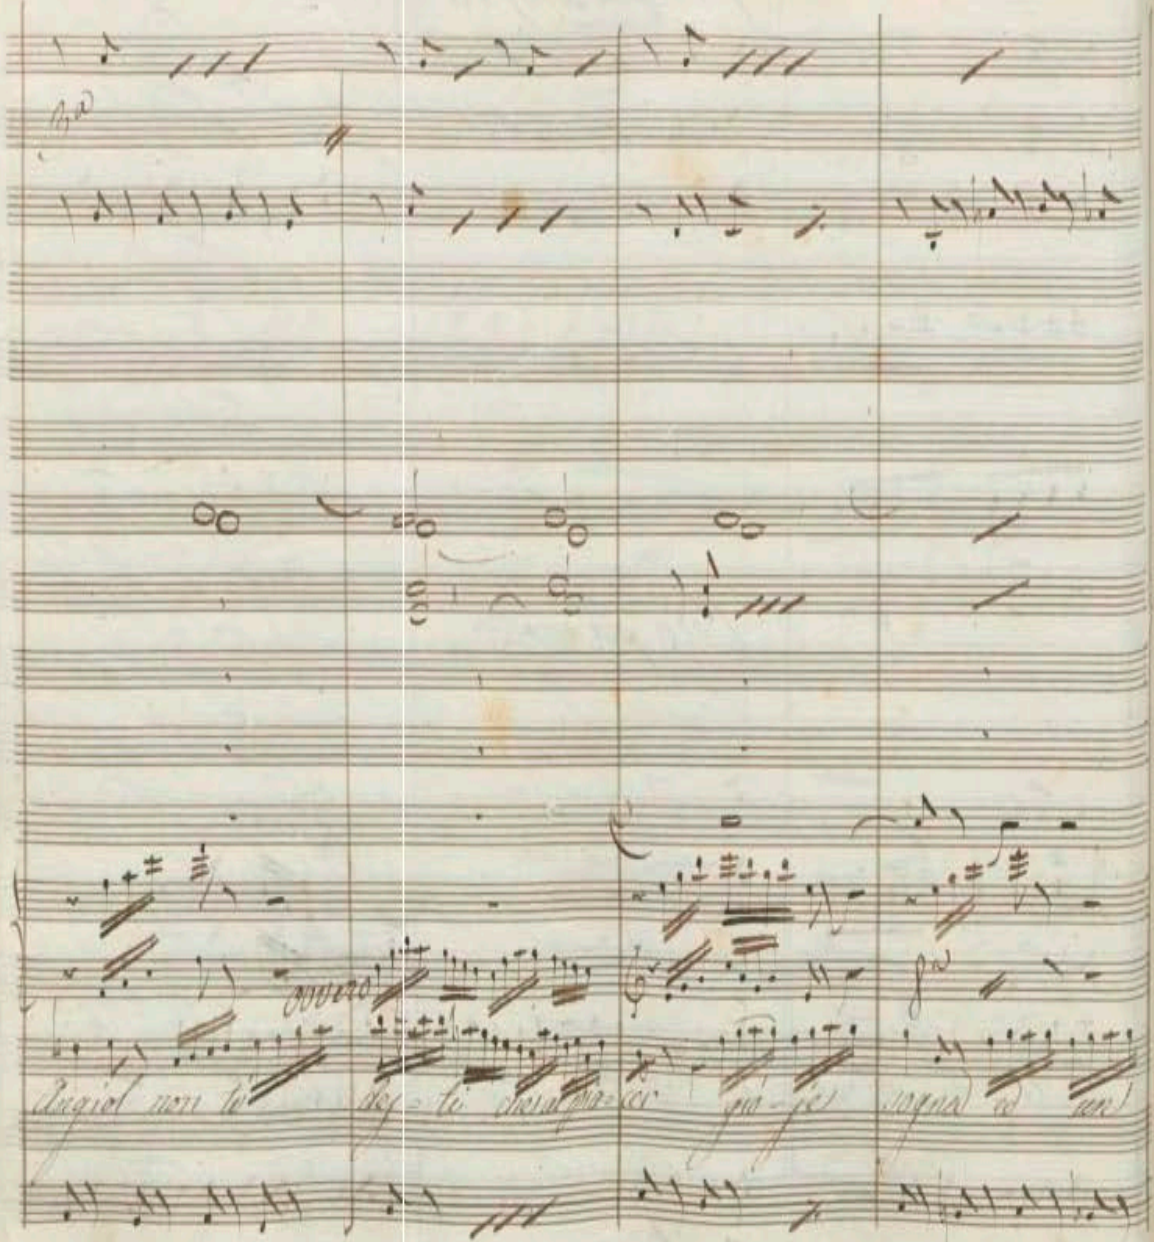 8va
ovvero
angiol non ti des = ti che al pia = cer gio = je sogna ed un